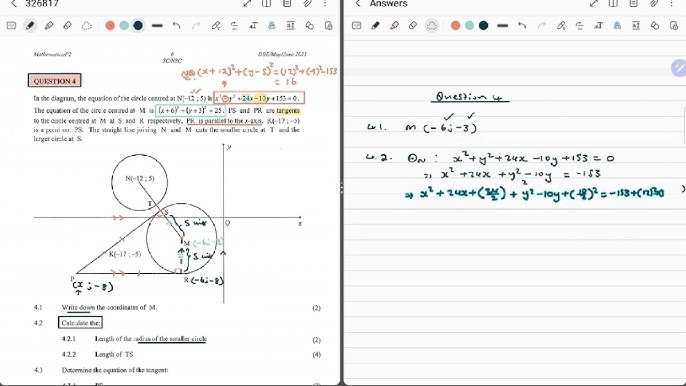 326817
Answers
Mathematics/P2
6
SC/NSC
DBE/May/June 2023
(x+12)²+(y-5)²=(12)²+(-5)²-153
= 16
QUESTION 4
In the diagram, the equation of the circle centred at N(−12 ; 5) is x²+y²+24x−10y+153=0.
The equation of the circle centred at M is (x+6)²+(y+3)²=25. PS and PR are tangents
to the circle centred at M at S and R respectively. PR is parallel to the x-axis. K(−17 ; −5)
is a point on PS. The straight line joining N and M cuts the smaller circle at T and the
larger circle at S.
y
N(−12 ; 5)
T
S
0
x
5 units
M (-6;-3)
5 units
K(−17 ; −5)
P
R (-6;-8)
(x ; -8)
4.1 Write down the coordinates of M. (2)
4.2 Calculate the:
4.2.1 Length of the radius of the smaller circle (2)
4.2.2 Length of TS (4)
4.3 Determine the equation of the tangent:
Question 4
4.1. M (-6;-3)
4.2. ⊙N: x²+y²+24x-10y+153=0
⇒ x²+24x+y²-10y = -153